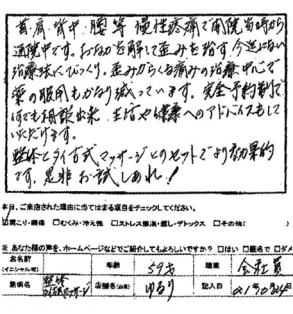 首、肩、背中、腰等 慢性疼痛で開院当時から
通院中です。おなかを解して歪みを治す今迄にない
治療法にびっくり。歪みからくる痛みの治療中心で
薬の服用もかなり減っています。完全予約制で
何でも相談出来、生活や健康へのアドバイスもして
いただけます。
整体とタイ古式マッサージとのセットでより効果的
です。是非お試しあれ!
本日、ご来店された理由に当てはまる項目をチェックしてください。
肩こり・腰痛 □むくみ・冷え性 □ストレス解消・癒し・デトックス □その他(
※ あなた様の声を、ホームページなどでご紹介してもよろしいですか? □はい □匿名で □ダメ
お名前
(イニシャル可) 年齢 59才 職業 会社員
施術名 整体 店舗名(必須) ゆるり 記入日
タイ古式マッサージ